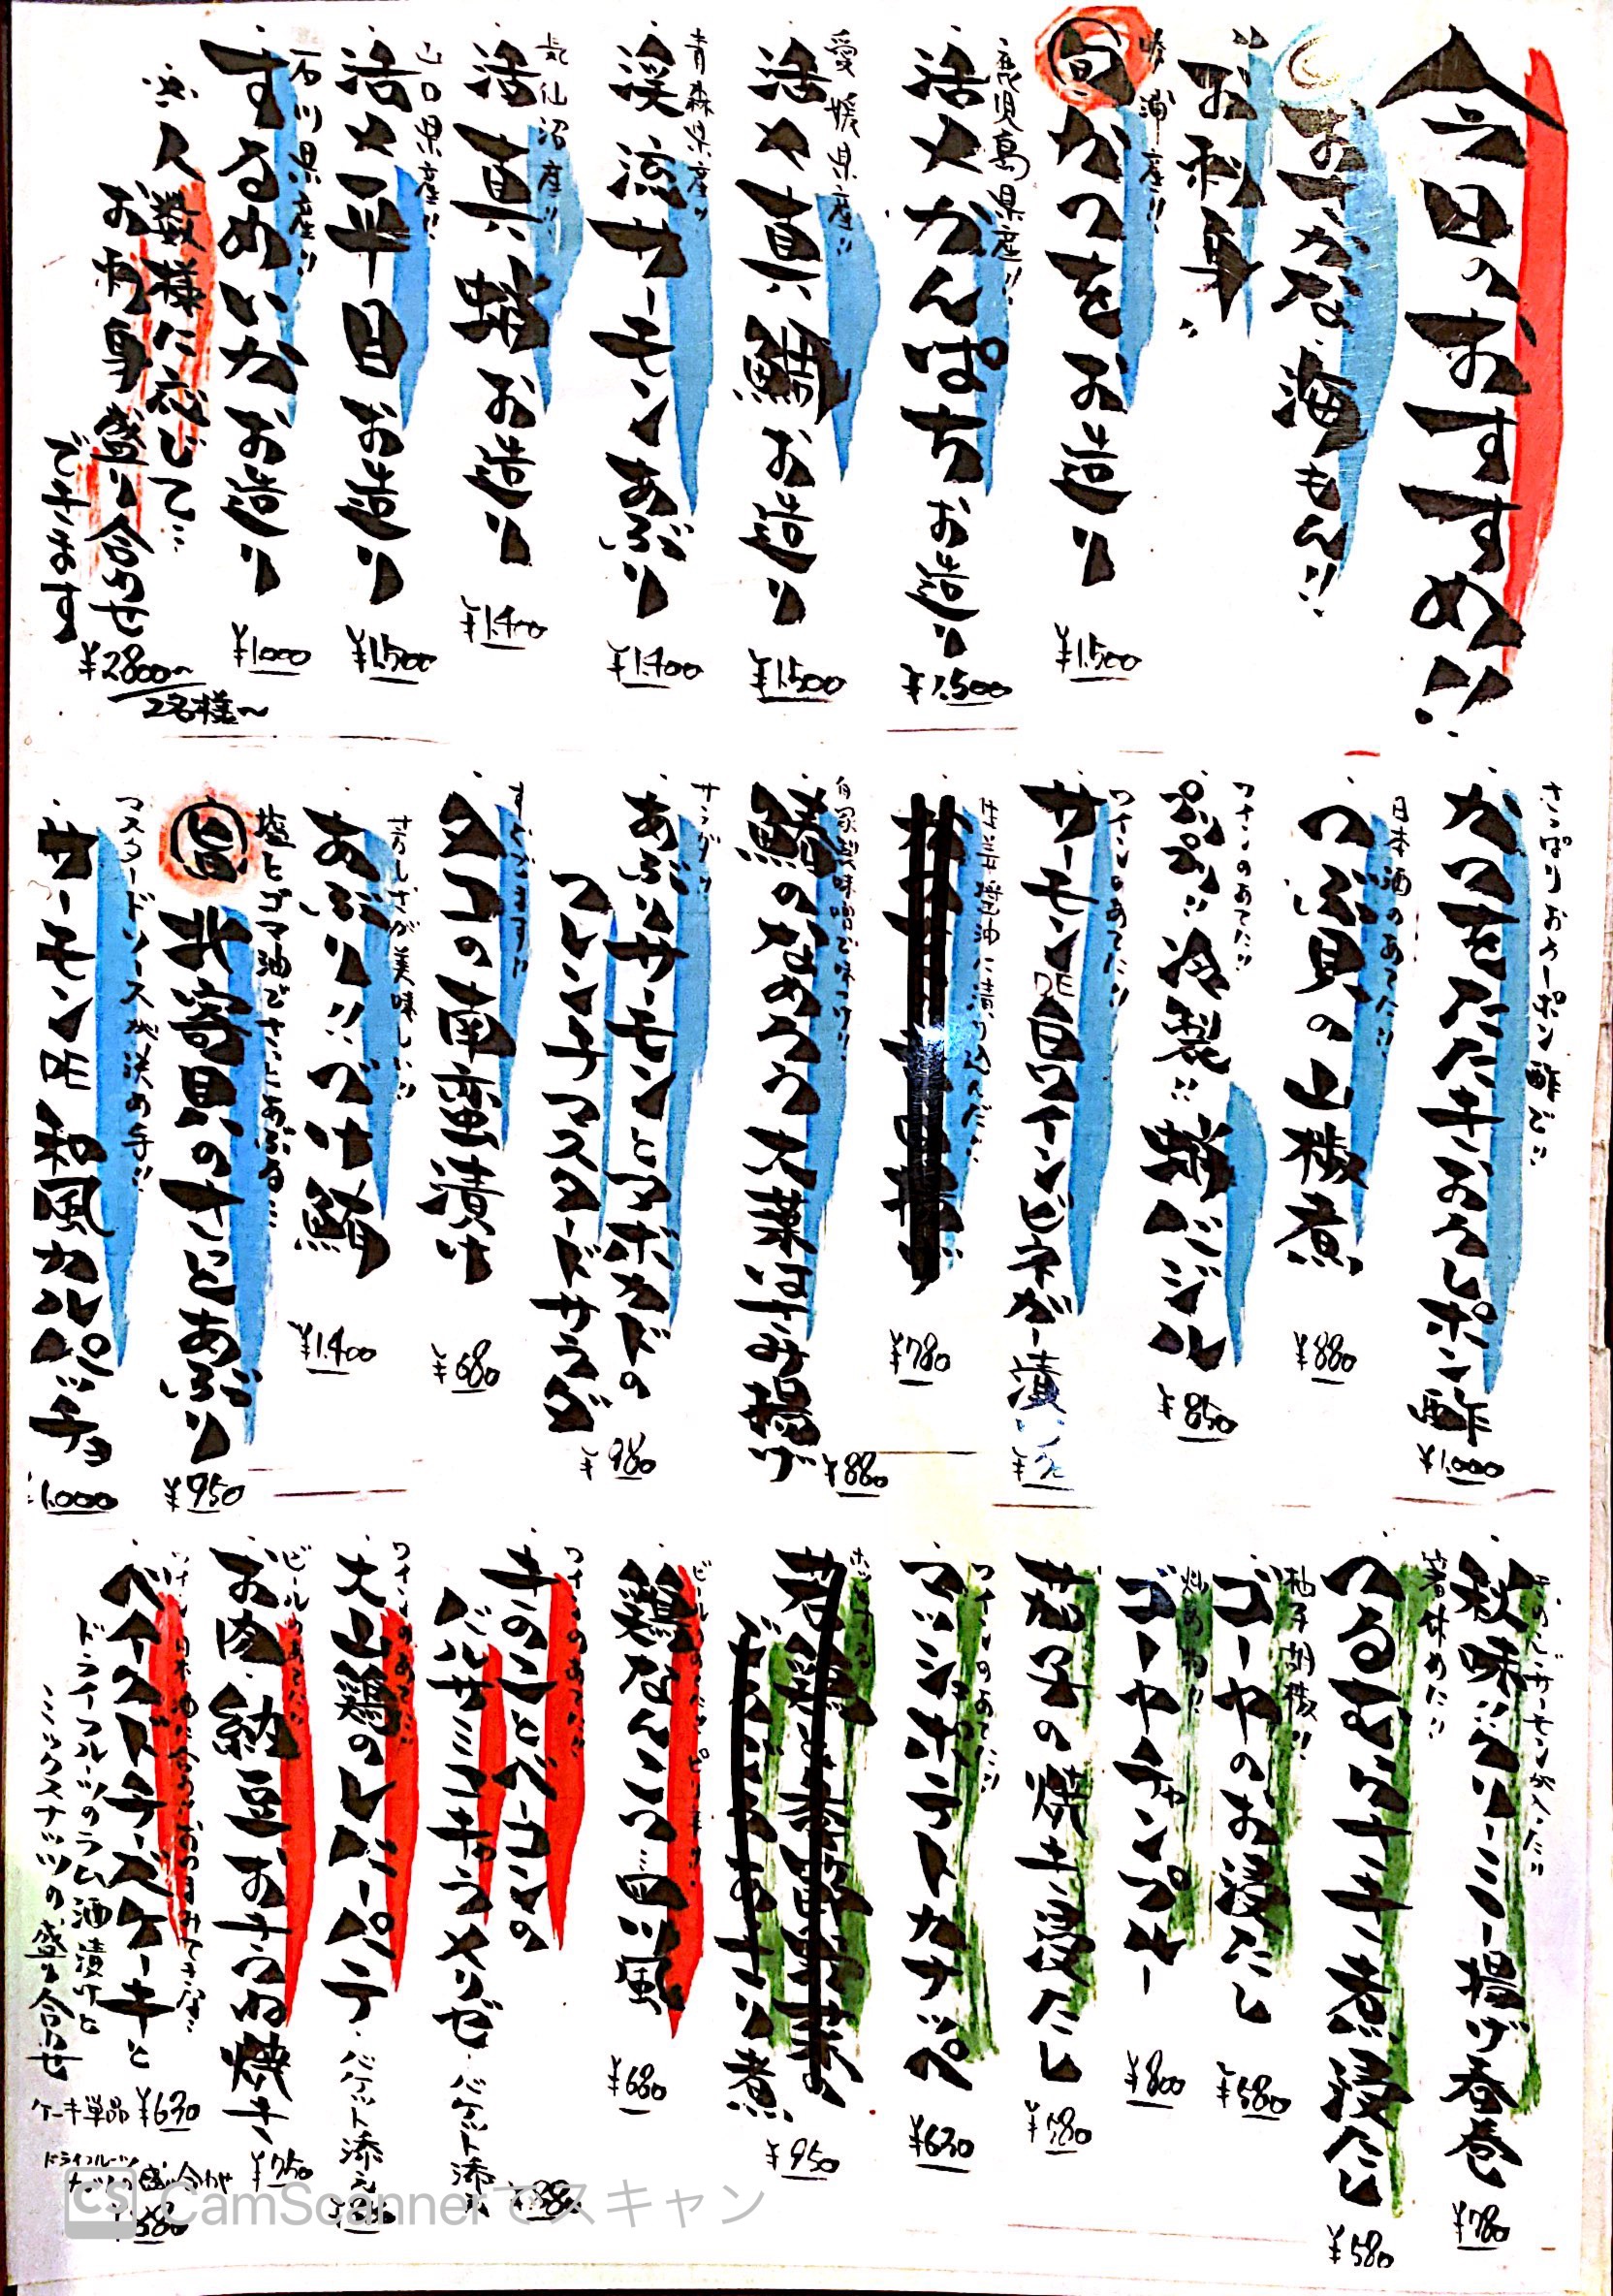 今日のおすすめ!!
お刺身
旬 かつをお造り
¥1,500
鹿児島県産!!
活〆かんぱち お造り
¥1,500
愛媛県産!!
活〆真鯛お造り
¥1,500
青森県産!!
渓流サーモンあぶり
¥1,400
気仙沼産!!
活真蛸お造り
¥1,400
山口県産!!
活〆平目お造り
¥1,500
石川県産!!
するめいかお造り
¥1,000
※人数様に応じて…
お刺身盛り合わせ
できます
¥2800〜
2名様〜
さっぱりおろしポン酢で!!
かつをたたきおろしポン酢
¥1,000
日本酒のあてに!!
つぶ貝の山椒煮
¥880
ワインのあてに!!
冷製!! 蛸バジル
¥850
ワインのあてに!!
サーモンDE白ワインビネガー漬け
生姜醤油に漬け込んだ…
¥780
自家製味噌で味つけ!!
鯵のなめろう大葉はさみ揚げ
¥880
サラダ!!
あぶりサーモンとアボカドの
フレンチマスタードサラダ
¥980
すぐでます!!
タコの南蛮漬け
¥680
香ばしさが美味しい!!
あぶり!!づけ鮪
¥1,400
塩とゴマ油でさっとあぶる…
旨 北寄貝のさっとあぶり
¥950
マスタードソースが決め手!!
サーモンDE和風カルパッチョ
1,000
きのことサーモンが入った!!
秋味!!クリーミー揚げ春巻
¥780
箸休めに!!
つるむらさき煮浸たし
¥580
柚子胡椒!!
ゴーヤのお浸たし
¥580
炒め物!!
ゴーヤチャンプルー
¥800
茄子の焼き浸たし
¥580
ワインのあてに!!
マッシュポテトカナッペ
¥630
煮
¥950
鶏なんこつ…四川風
¥680
ワインのあてに!!
きのことベーコンの
バルサミコキャラメリゼ・バゲット添え
ワインのあてに!!
大山鶏のレバーパテ・バゲット添え
ビールのあてに!!
お肉・納豆お好きやね焼き
¥750
ベイクドチーズケーキと
ドライフルーツのラム酒漬けと
ミックスナッツの盛り合わせ
ケーキ単品 ¥630
ドライフルーツ
ナッツの盛り合わせ
¥580
CS CamScannerでスキャン